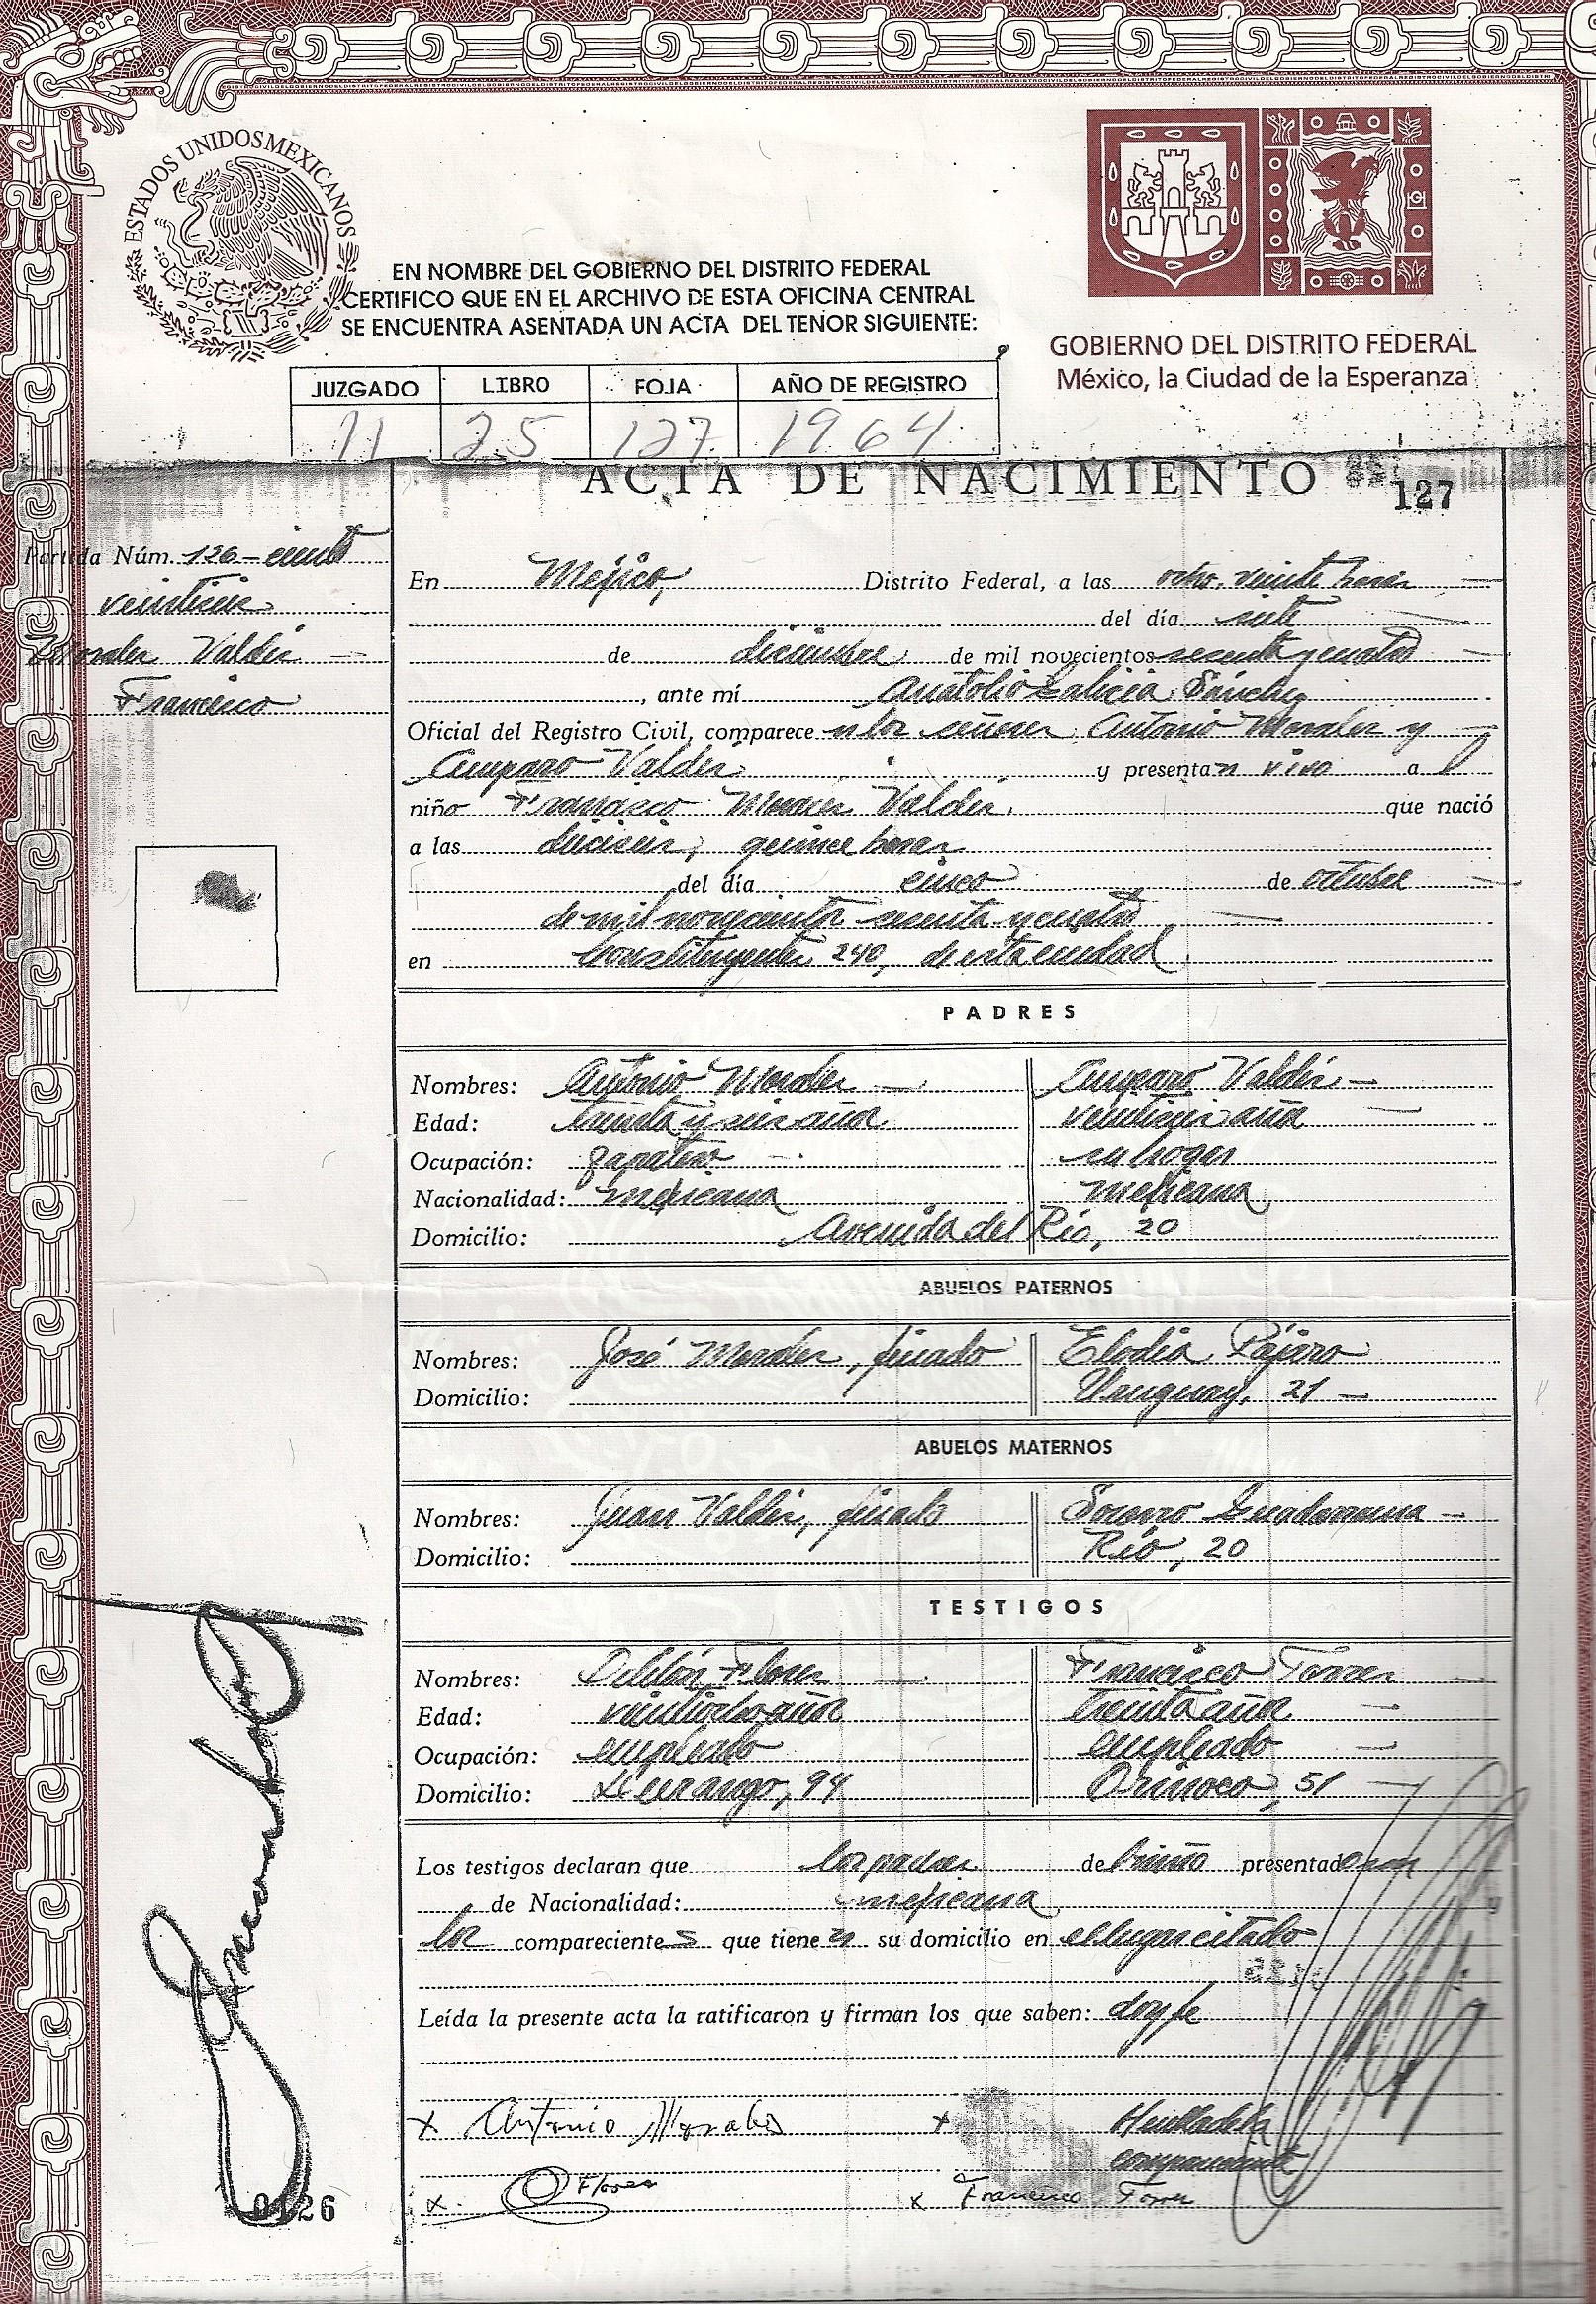 ESTADOS UNIDOS MEXICANOS
EN NOMBRE DEL GOBIERNO DEL DISTRITO FEDERAL
CERTIFICO QUE EN EL ARCHIVO DE ESTA OFICINA CENTRAL
SE ENCUENTRA ASENTADA UN ACTA DEL TENOR SIGUIENTE:
GOBIERNO DEL DISTRITO FEDERAL
México, la Ciudad de la Esperanza
JUZGADO LIBRO FOJA AÑO DE REGISTRO
11 25 127 1964
ACTA DE NACIMIENTO
127
Partida Núm. 126 - ciento
veintiseis
Morales Valdés
Francisco
En Mejico, Distrito Federal, a las ocho, veinte horas
del día siete
de diciembre de mil novecientos sesenta y cuatro
, ante mí Anatolio Galicia Sánchez
Oficial del Registro Civil, comparece n los señores Antonio Morales y
Amparo Valdés y presenta n vivo a l
niño Francisco Morales Valdés, que nació
a las dieciseis, quince horas
del día cinco de octubre
de mil novecientos sesenta y cuatro
en Constituyentes 240, de esta ciudad
PADRES
Nombres: Antonio Morales Amparo Valdés
Edad: treinta y seis años veintiseis años
Ocupación: zapatero su hogar
Nacionalidad: mejicana mejicana
Domicilio: Avenida del Río, 20
ABUELOS PATERNOS
Nombres: José Morales, finado Elodia Pájaro
Domicilio: Uruguay, 21
ABUELOS MATERNOS
Nombres: Juan Valdés, finado Socorro Guadarrama
Domicilio: Río, 20
TESTIGOS
Nombres: Odilón Flores Francisco Torres
Edad: veintiocho años treinta años
Ocupación: empleado empleado
Domicilio: Durango, 94 Orinoco, 51
Los testigos declaran que los padres del niño presentado son
de Nacionalidad: mejicana
los comparecientes que tienen su domicilio en el lugar citado
Leída la presente acta la ratificaron y firman los que saben: doy fe
x Antonio Morales x Huella de la
compareciente
x O Flores x Francisco Torres
0126